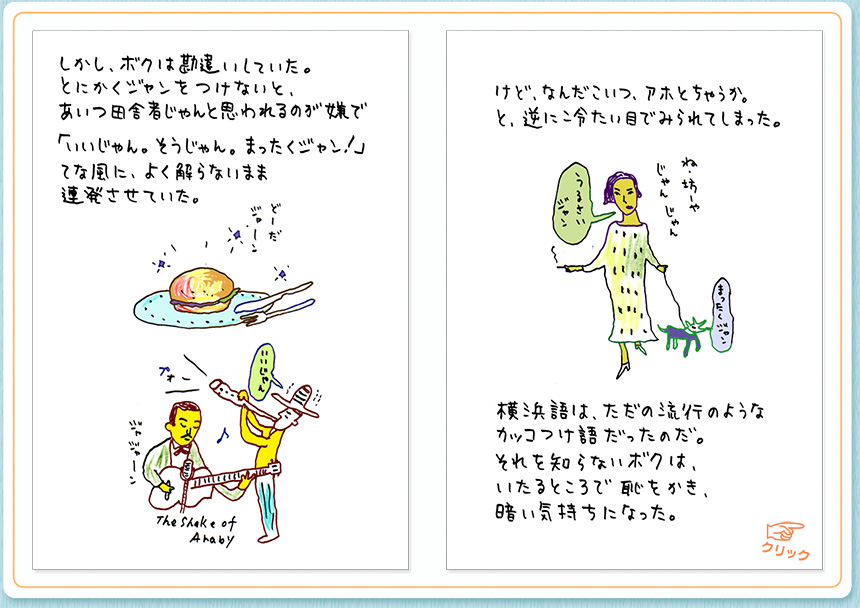 しかし、ボクは勘違いしていた。
とにかくジャンをつけないと、
あいつ田舎者じゃんと思われるのが嫌で
「いいじゃん。そうじゃん。まったくジャン！」
てな風に、よく解らないまま
連発させていた。
どーだ
ジャーン
いいじゃん
プォー
ジャ
ジャーン
The Shake of
Araby
けど、なんだこいつ、アホとちゃうか。
と、逆に冷たい目でみられてしまった。
ね、坊ーや
じゃんじゃん
うるさい
ジャン
まったくジャン
横浜語は、ただの流行のような
カッコつけ語だったのだ。
それを知らないボクは、
いたるところで恥をかき、
暗い気持ちになった。
クリック